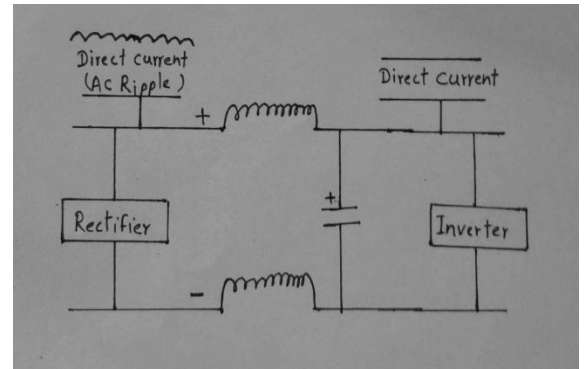 Direct current
(Ac Ripple)
Direct Current
+
+
Rectifier
Inverter
-